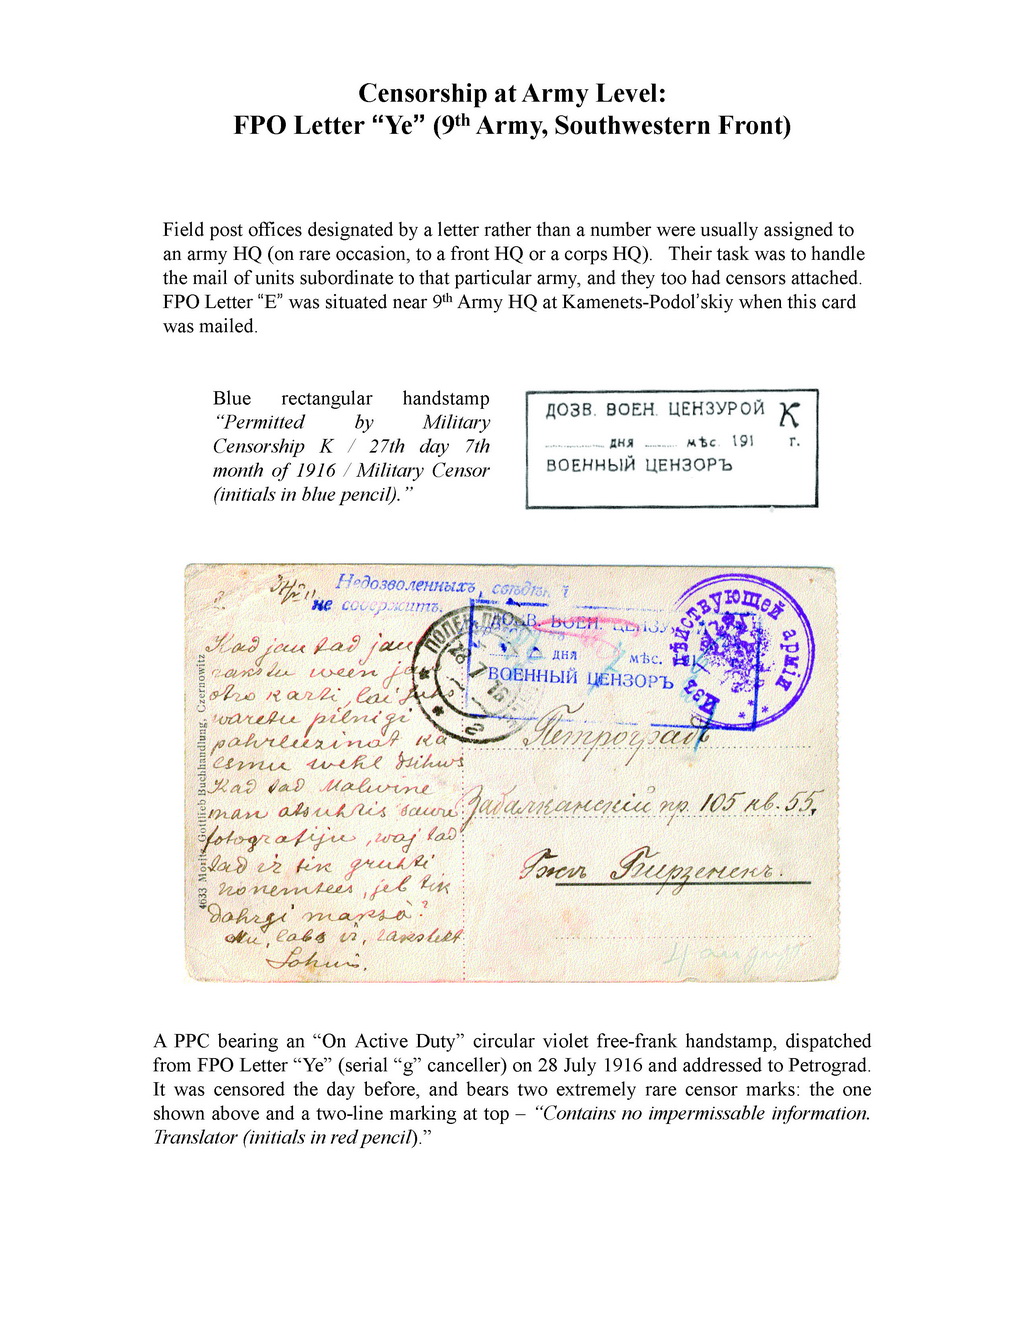 Censorship at Army Level:
FPO Letter “Ye” (9th Army, Southwestern Front)
Field post offices designated by a letter rather than a number were usually assigned to
an army HQ (on rare occasion, to a front HQ or a corps HQ). Their task was to handle
the mail of units subordinate to that particular army, and they too had censors attached.
FPO Letter “E” was situated near 9th Army HQ at Kamenets-Podol’skiy when this card
was mailed.
Blue rectangular handstamp
“Permitted by Military
Censorship K / 27th day 7th
month of 1916 / Military Censor
(initials in blue pencil).”
ДОЗВ. ВОЕН. ЦЕНЗУРОЙ К
дня мѣс. 191 г.
ВОЕННЫЙ ЦЕНЗОРЪ
Недозволенныхъ
не содержитъ.
ДОЗВ. ВОЕН. ЦЕНЗУ
дня мѣс.
ВОЕННЫЙ ЦЕНЗОРЪ
Изъ дѣйствующей арміи
28 7 16
4633 Moritz Gottlieb Buchhandlung, Czernowitz
Kad jau tad jau
rakstu ween ja
otro karti, lai
waretu pilnigi
pahrleezinat ka
esmu wehl dsihws
Kad tad Malwine
man atsuhtis sawu
fotografiju, waj tad
tad ir tik gruhti
nonemtees, jeb tik
dahrgi maksà?
Nu, labs ir, raksteet
Петроградъ
Забалканскій пр. 105 кв. 55,
Гжѣ Бирзенекъ.
4 august
A PPC bearing an “On Active Duty” circular violet free-frank handstamp, dispatched
from FPO Letter “Ye” (serial “g” canceller) on 28 July 1916 and addressed to Petrograd.
It was censored the day before, and bears two extremely rare censor marks: the one
shown above and a two-line marking at top – “Contains no impermissable information.
Translator (initials in red pencil).”